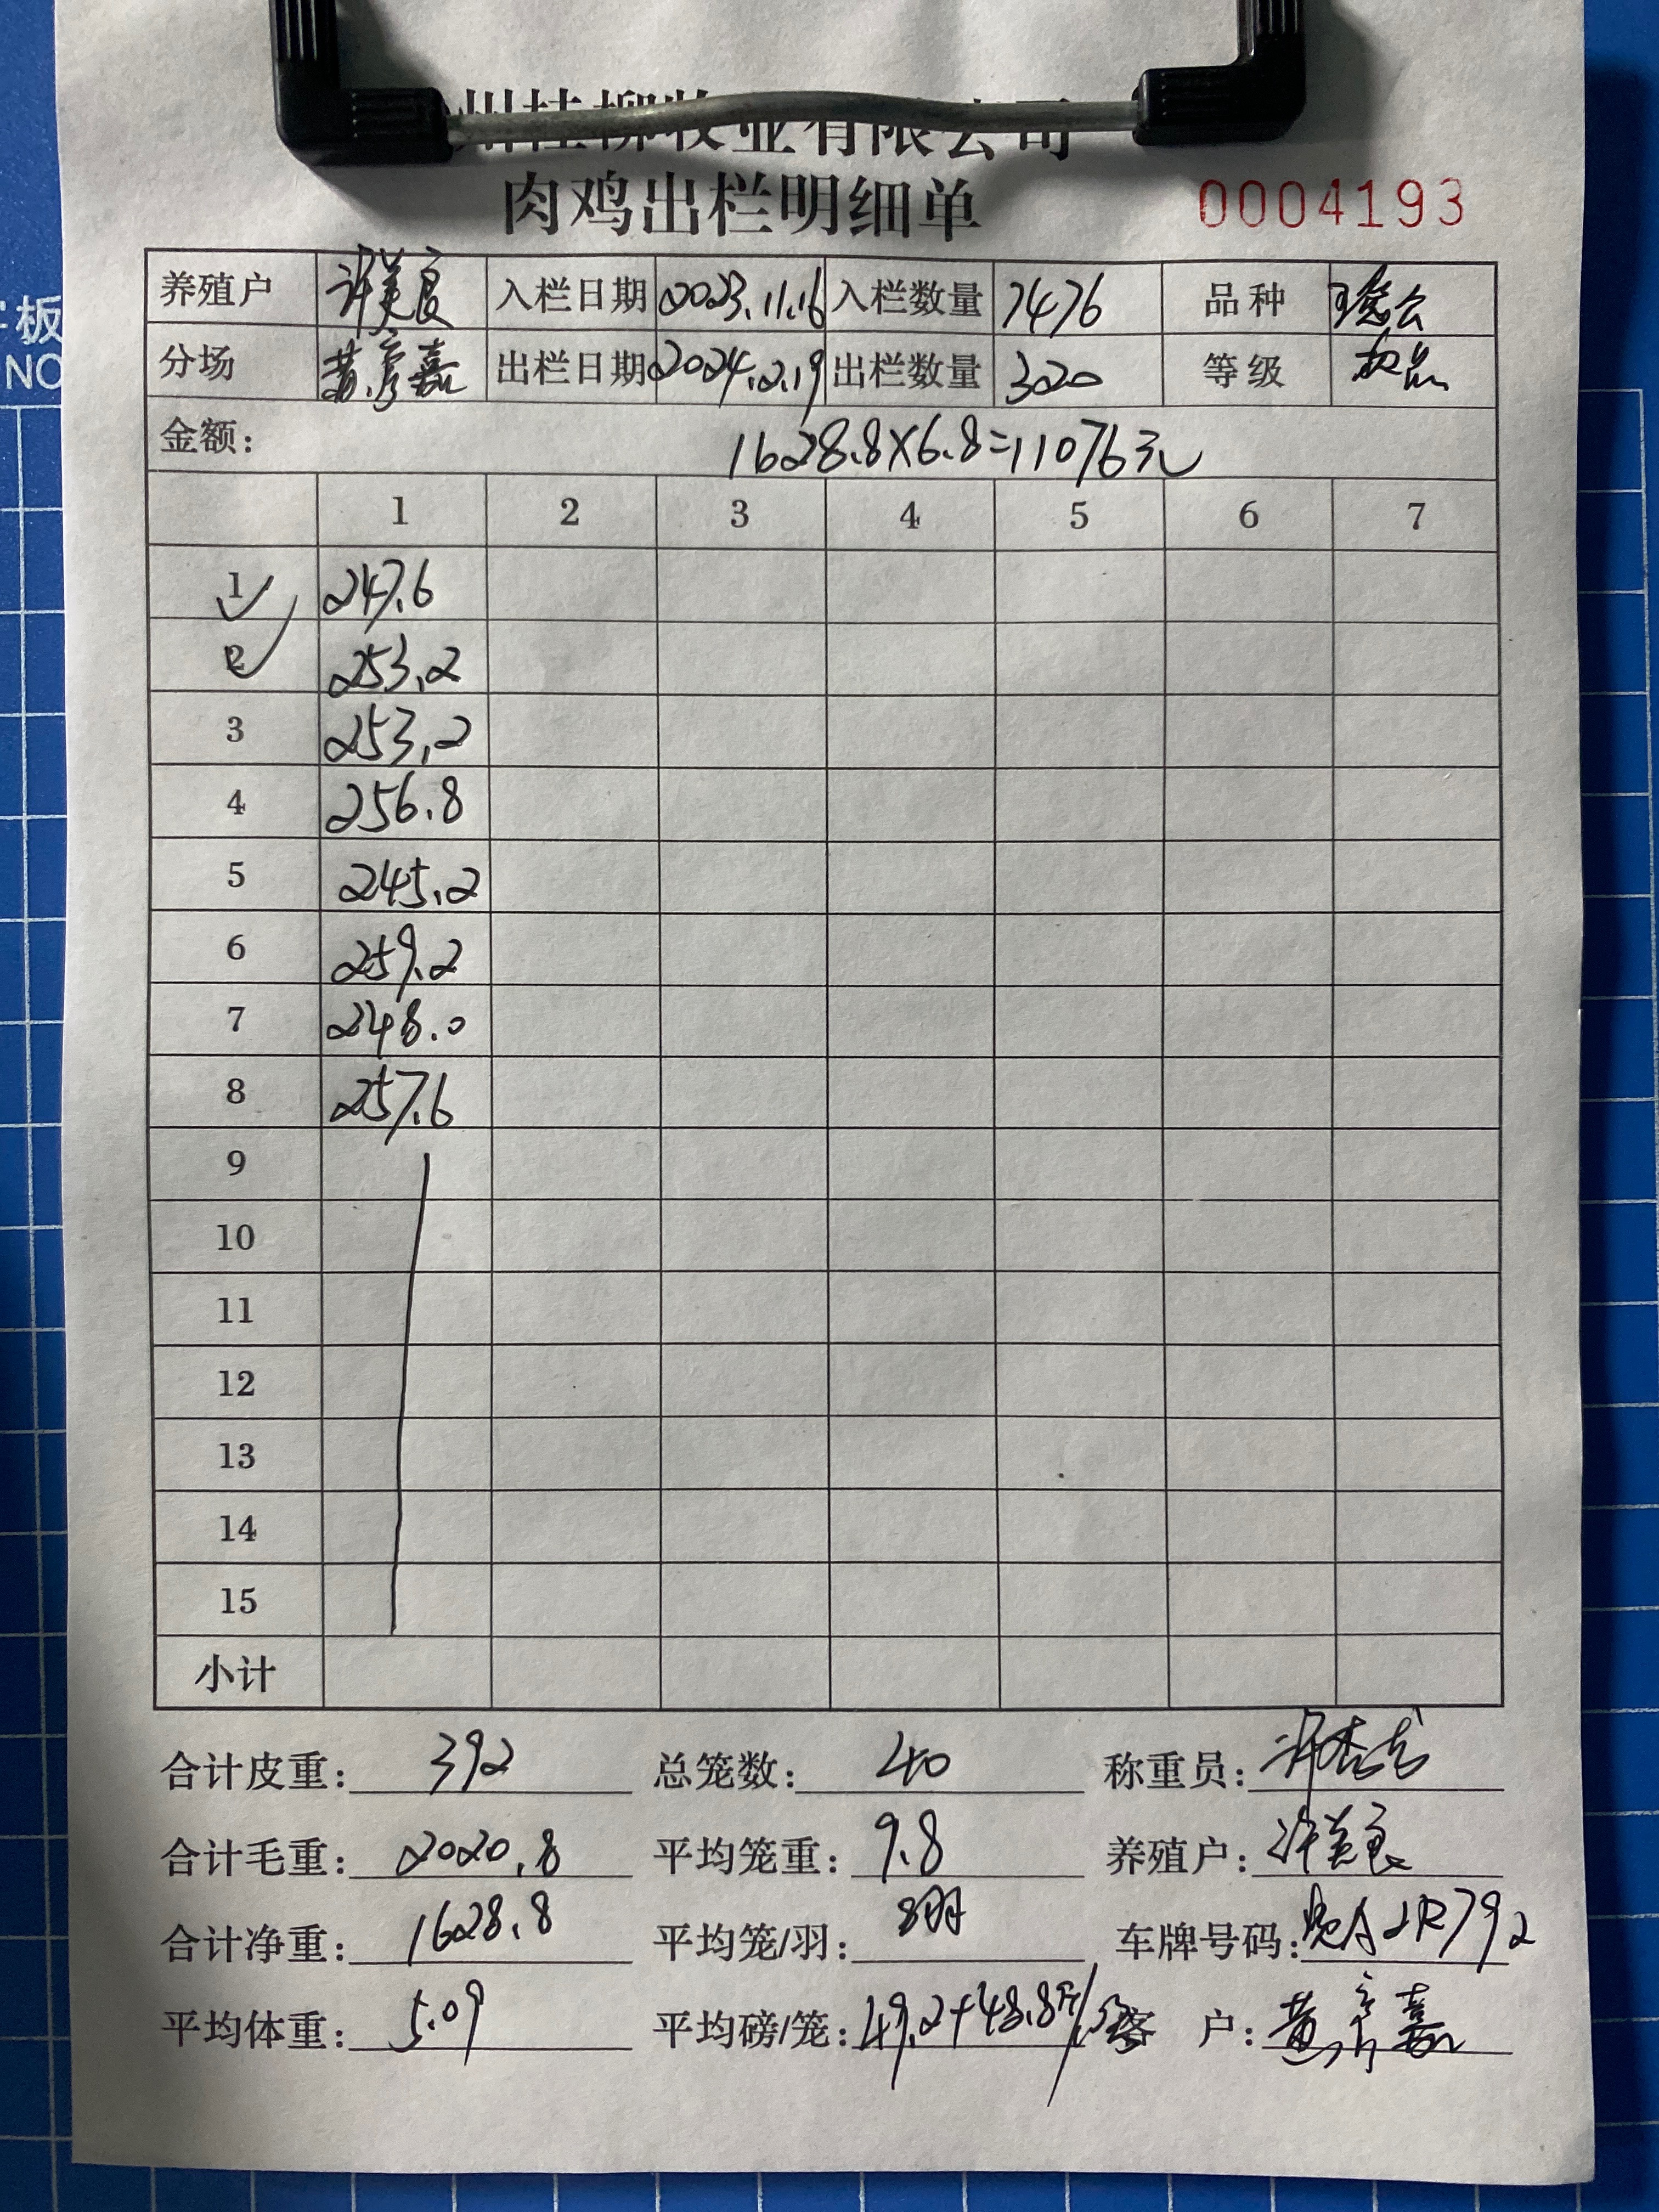 州桂柳牧业有限公司
肉鸡出栏明细单 0004193
养殖户 许美良 入栏日期 2023.11.16 入栏数量 7476 品种
分场 黄彦嘉 出栏日期 2024.2.19 出栏数量 320 等级
金额: 1628.8×6.8=11076元
1 2 3 4 5 6 7
1 247.6
2 253.2
3 253.2
4 256.8
5 245.2
6 259.2
7 248.0
8 257.6
9
10
11
12
13
14
15
小计
合计皮重: 392 总笼数: 40 称重员:
合计毛重: 2020.8 平均笼重: 9.8 养殖户: 许美良
合计净重: 1628.8 平均笼/羽: 8羽 车牌号码: A2R792
平均体重: 5.09 平均磅/笼: 49.2+48.8斤/ 客 户: 黄彦嘉
字板
NO